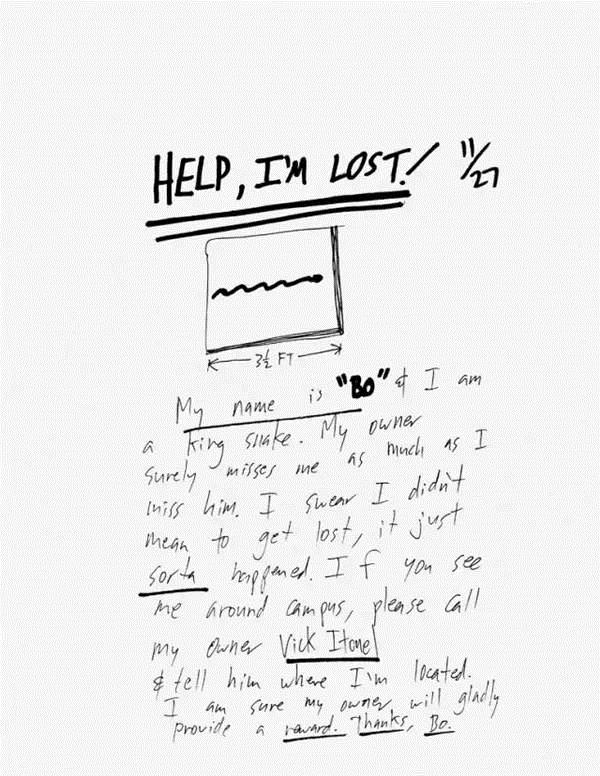 HELP, I'M LOST! 11/27
3½ FT
My name is "BO" & I am
a king snake. My owner
surely misses me as much as I
miss him. I swear I didn't
mean to get lost, it just
sorta happened. If you see
me around campus, please call
my owner Vick Itone
& tell him where I'm located.
I am sure my owner will gladly
provide a reward. Thanks, Bo.